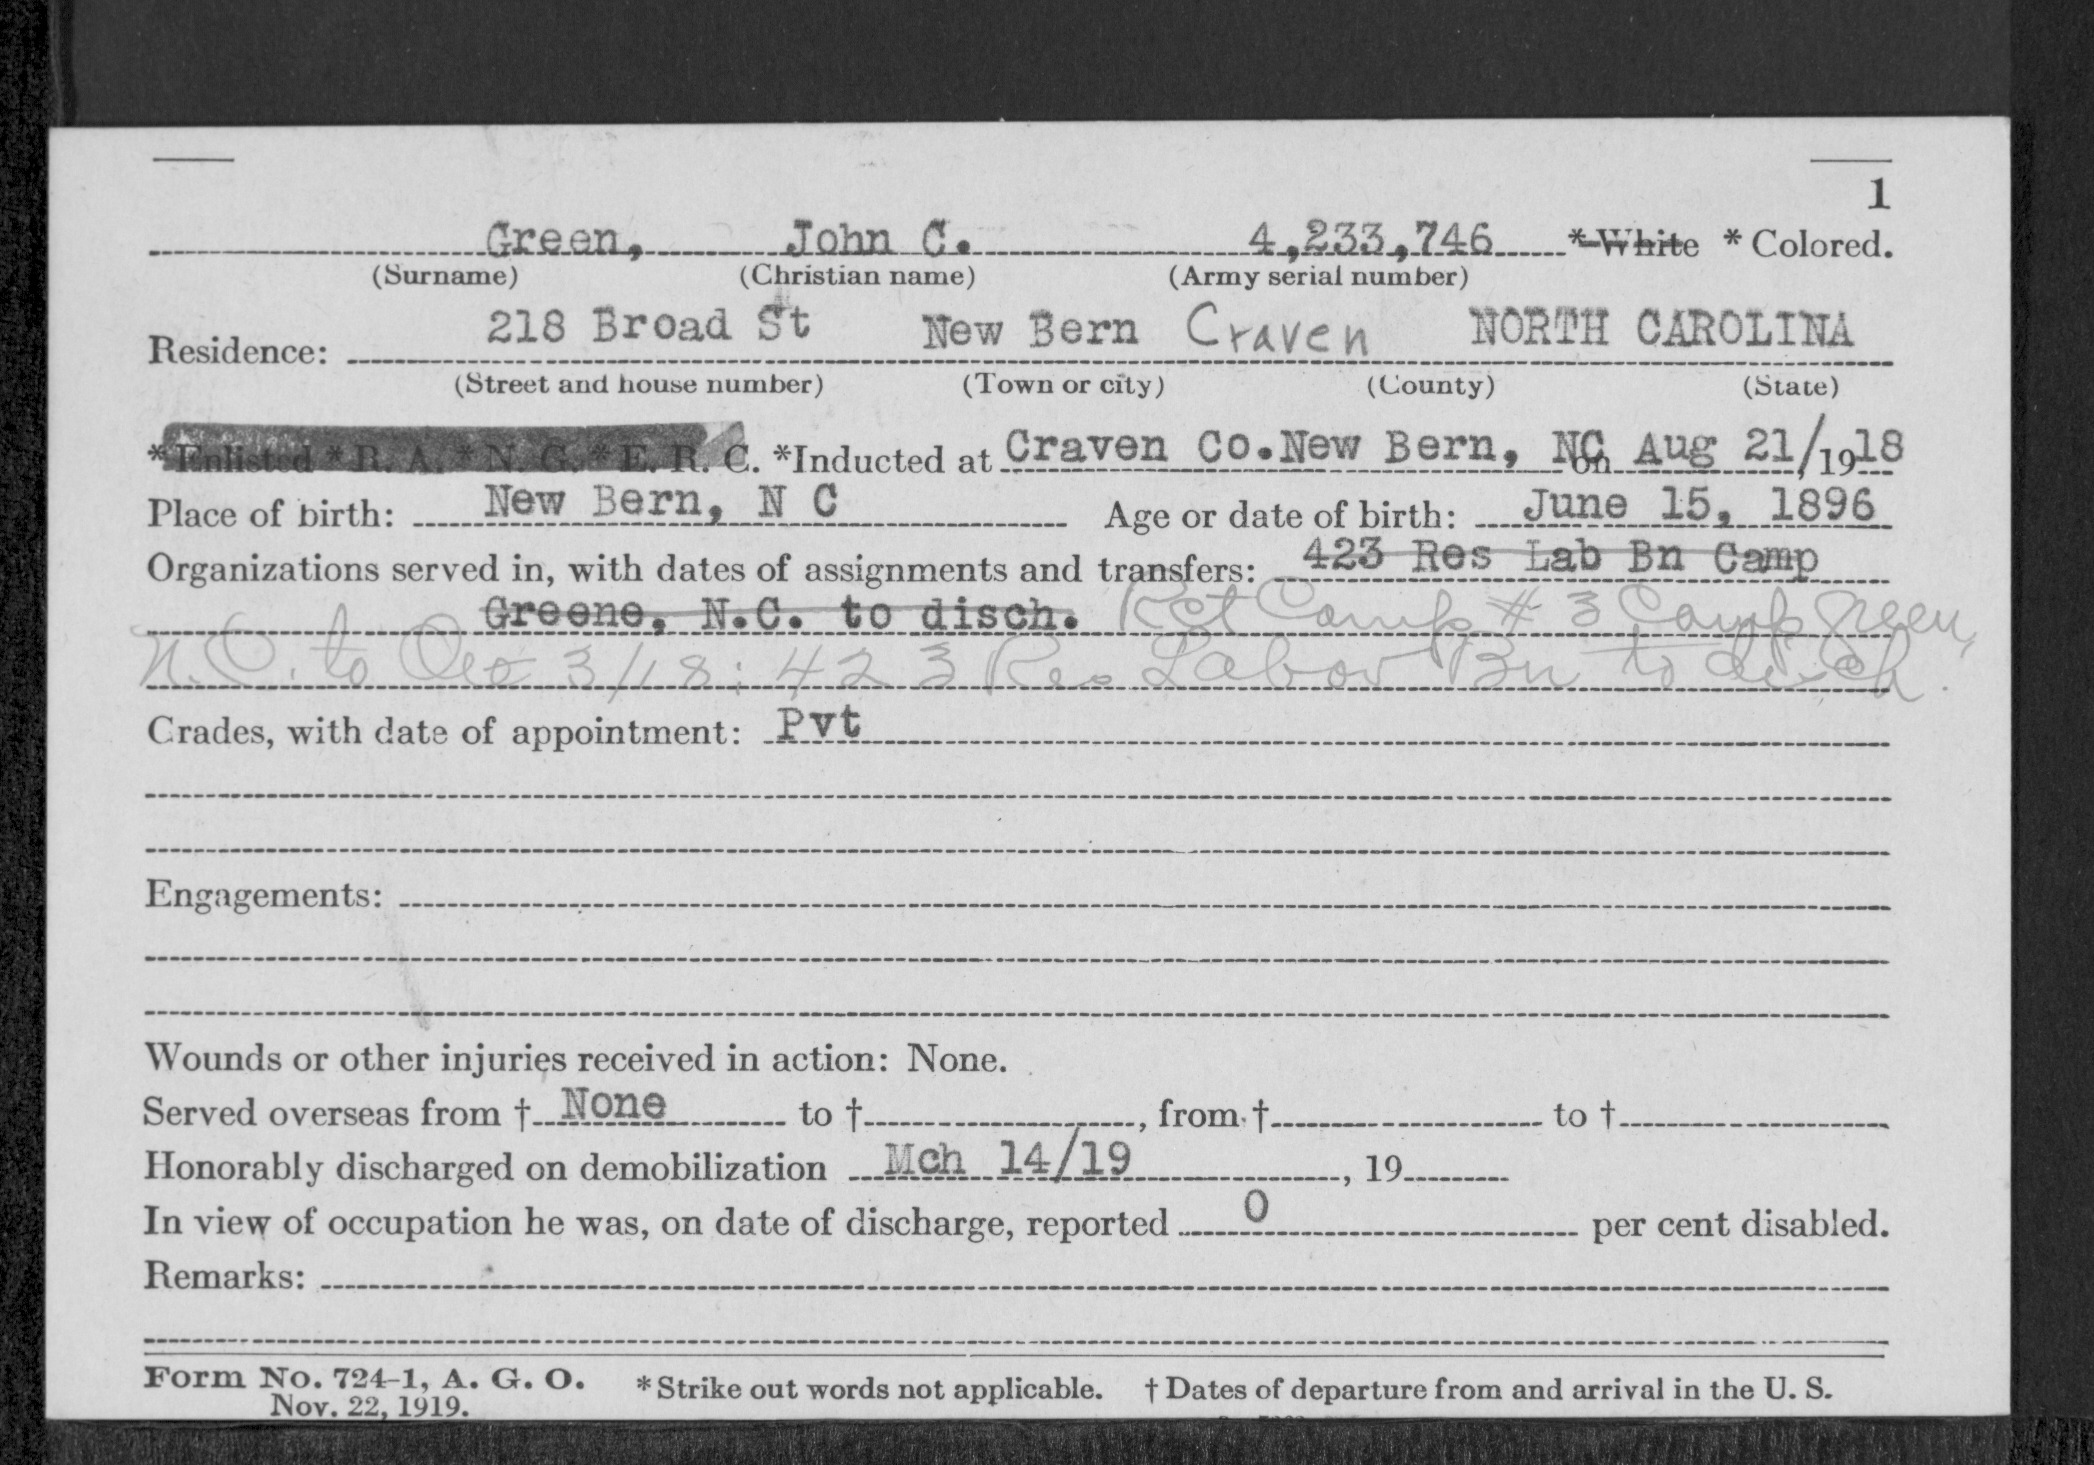 1
Green, John C. 4,233,746 *White *Colored.
(Surname) (Christian name) (Army serial number)
Residence: 218 Broad St New Bern Craven NORTH CAROLINA
(Street and house number) (Town or city) (County) (State)
*Enlisted *R. A. *N. G. *E. R. C. *Inducted at Craven Co. New Bern, NC on Aug 21/1918
Place of birth: New Bern, N C Age or date of birth: June 15, 1896
Organizations served in, with dates of assignments and transfers: 423 Res Lab Bn Camp
Greene, N.C. to disch. Rct Camp # 3 Camp Green,
N.C. to Dec 3/18; 423 Res Labor Bn to disch.
Grades, with date of appointment: Pvt
Engagements:
Wounds or other injuries received in action: None.
Served overseas from † None to †, from † to †
Honorably discharged on demobilization Mch 14/19, 19
In view of occupation he was, on date of discharge, reported 0 per cent disabled.
Remarks:
Form No. 724-1, A. G. O. *Strike out words not applicable. † Dates of departure from and arrival in the U. S.
Nov. 22, 1919.